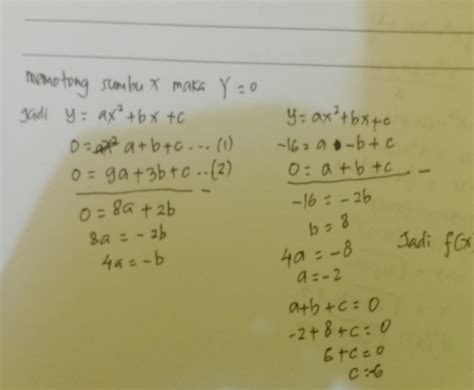 memotong sumbu x maka Y = 0
Jadi y = ax² + bx + c
0 = a + b + c ... (1)
0 = 9a + 3b + c ... (2)
0 = 8a + 2b
8a = -2b
4a = -b
y = ax² + bx + c
-16 = a - b + c
0 = a + b + c
-16 = -2b
b = 8
4a = -8
a = -2
a + b + c = 0
-2 + 8 + c = 0
6 + c = 0
c = -6
Jadi f(x